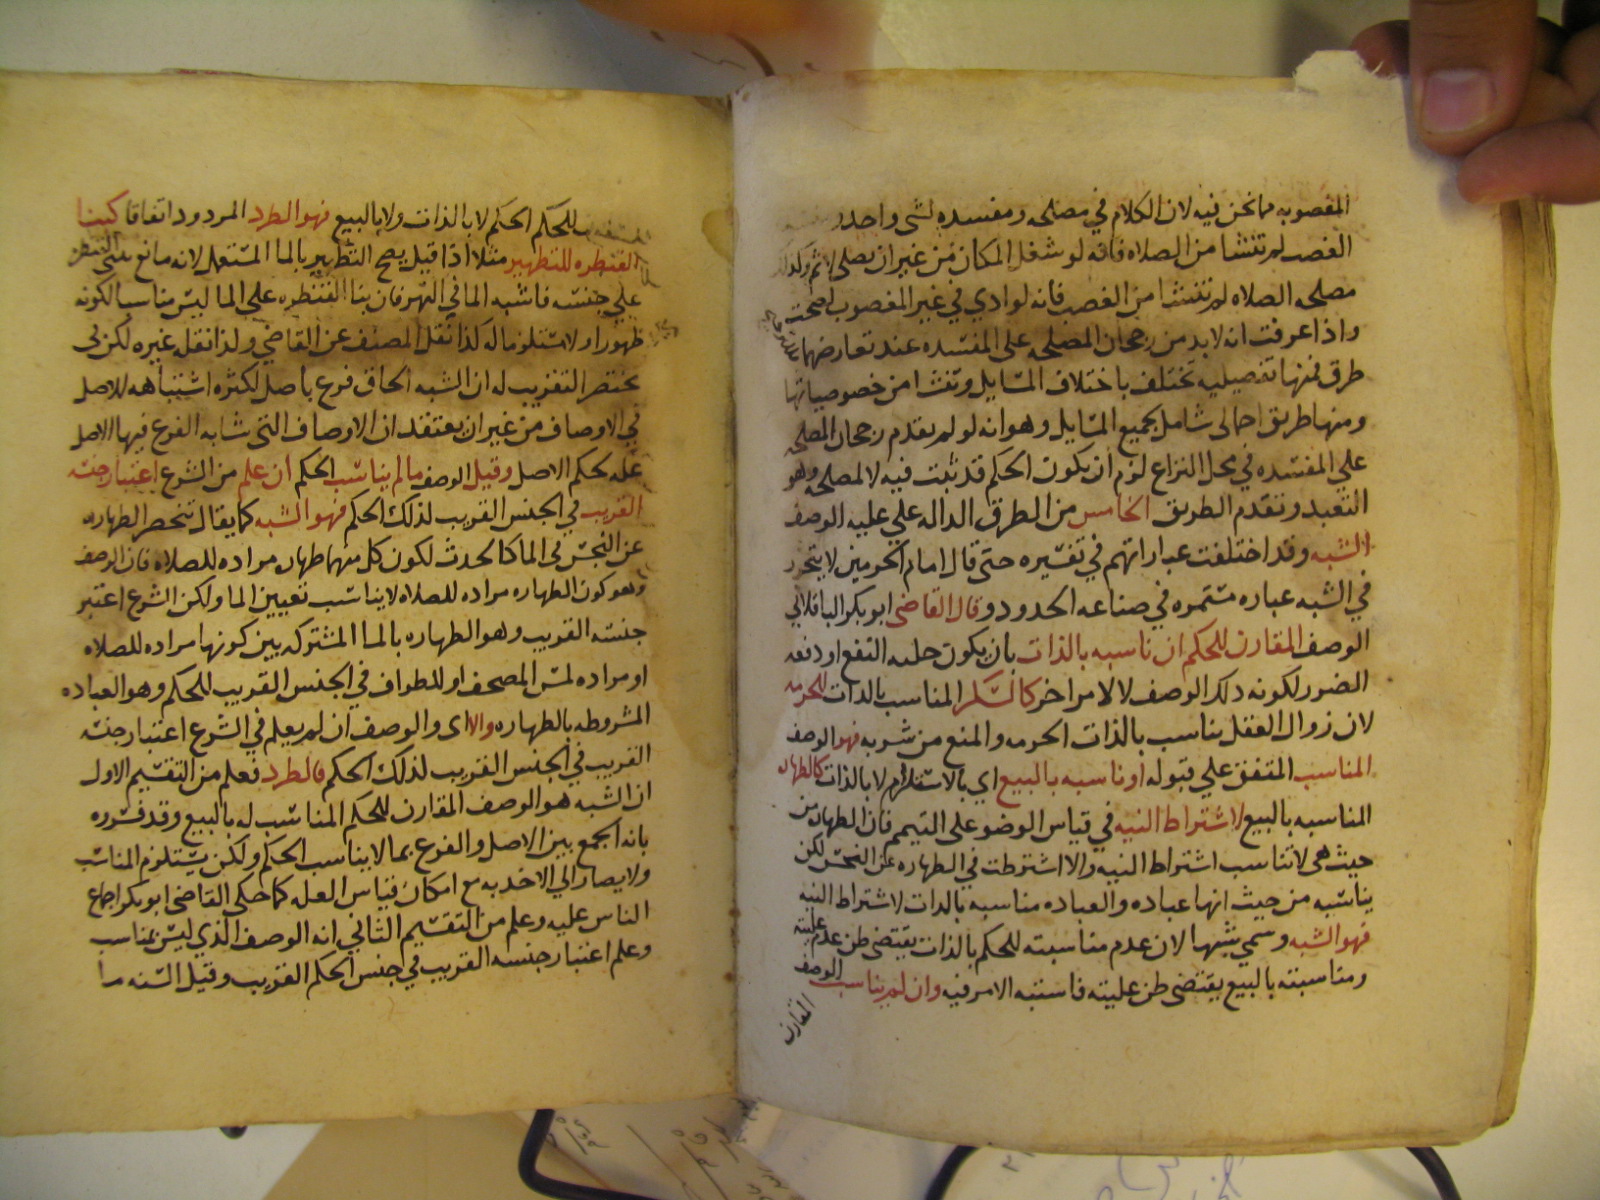 المغصوبه مما نحن فيه لان الكلام في مصلحه ومفسده لشى واحد و
الغصب لم تنشا من الصلاه فانه لو شغل المكان من غير ان يصلى لاثم وكذلك
مصلحه الصلاه لم تنشا من الغصب فانه لو ادي في غير المغصوب لصحت
واذا عرفت انه لا بد من رجحان المصلحه على المفسده عند تعارضهما
طرق فمنها تفصيليه تختلف باختلاف المسايل وتنشا من خصوصياتها
ومنها طريق اجمالى شامل لجميع المسايل وهو انه لو لم يقدم رجحان المصلحه
علي المفسده في محل النزاع لزم ان يكون الحكم قد ثبت فيه لا لمصلحه وهو
التعبد وتقدم الطريق الخامس من الطرق الداله علي عليه الوصف
الشبه وقد اختلفت عباراتهم في تفسيره حتى قال امام الحرمين لا يتحرر
في الشبه عباره مستمره في صناعه الحدود وقال القاضى ابو بكر الباقلاني
الوصف المقارن للحكم ان ناسبه بالذات بان يكون جلبه النفع او دفعه
الضرر لكونه ذلك الوصف لا لامر اخر كالسكر المناسب بالذات للحرمه
لان زوال العقل يناسب بالذات الحرمه والمنع من شربه فهو الوصف
المناسب المتفق علي قبوله او ناسبه بالبيع اي بالاستلزام لا بالذات كالطهاره
المناسبه بالبيع لاشتراط النيه في قياس الوضو على التيمم فان الطهاره من
حيث هى لا تناسب اشتراط النيه والا اشترطت في الطهاره عن النجس لكن
يناسبه من حيث انها عباده والعباده مناسبه بالذات لاشتراط النيه
فهو الشبه وسمي شبها لان عدم مناسبته للحكم بالذات يقتضى ظن عدم عليته
ومناسبته بالبيع يقتضى ظن عليته فاشتبه الامر فيه وان لم يناسب الوصف
المقارن
للحكم الحكم لا بالذات ولا بالبيع فهو الطرد المردود اتفاقا كبنا
القنطره للتطهير مثلا اذا قيل يصح التطهير بالما المستعمل لانه مانع تبنى القنطره
علي جنسه فاشبه الما في النهر فان بنا القنطره علي الما ليس مناسبا لكونه
طهورا ولا مستلزما له كذا نقل المصنف عن القاضي ولذا نقله غيره لكن في
مختصر التقريب له ان الشبه الحاق فرع باصل لكثره اشتباهه للاصل
في الاوصاف من غير ان يعتقد ان الاوصاف التى شابه الفرع فيها الاصل
عله لحكم الاصل وقيل الوصف ما لم يناسب الحكم ان علم من الشرع اعتبار جنسه
القريب في الجنس القريب لذلك الحكم فهو الشبه كما يقال تنحصر الطهاره
عن النجس في الما كالحدث لكون كل منهما طهاره مراده للصلاه فان الوصف
وهو كون الطهاره مراده للصلاه لا يناسب تعيين الما ولكن الشرع اعتبر
جنسه القريب وهو الطهاره بالما المشتركه بين كونها مراده للصلاه
او مراده لمس المصحف او للطواف في الجنس القريب للحكم وهو العباده
المشروطه بالطهاره والا اى والوصف ان لم يعلم في الشرع اعتبار جنسه
القريب في الجنس القريب لذلك الحكم فالطرد فعلم من التقسيم الاول
ان الشبه هو الوصف المقارن للحكم المناسب له بالبيع وقد فسروه
بانه الجمع بين الاصل والفرع بما لا يناسب الحكم ولكن يستلزم المناسب
ولا يصار الي الاخذ به مع امكان قياس العله كما حكى القاضى ابو بكر اجماع
الناس عليه وعلم من التقسيم الثاني انه الوصف الذي ليس بمناسب
وعلم اعتبار جنسه القريب في جنس الحكم القريب وقيل الشبه ما